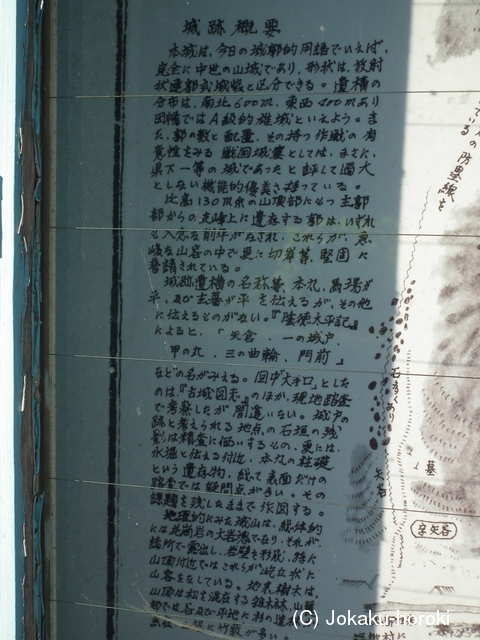 城跡概要
本城は、今日の城郭的用語でいえば、
完全に中世の山城であり、形状は、放射
状連郭式城砦と区分できる。遺構の
分布は、南北600m、東西400mあり
因幡ではA級的雄城といえよう。ま
た、郭の数と配置、その持つ作戦の有
意性をみる戦国城塞としては、まさに、
県下一等の城であったと評して過大
としない機能的優美さ持っている。
比高130m余の山頂部にもつ主郭
部からの走峰上に遺存する郭は、いずれ
も入念な削平がなされ、これらが、急
峻な山容の中で更に切岸等、堅固に
普請されている。
城跡遺構の名称等、本丸、馬場が
平、及び玄蕃が平を伝えるが、その他
に伝えるものがない。『陰徳太平記』
によると、「矢倉、一の城戸、
甲の丸、三の曲輪、門前」
などの名がみえる。図中「大手口」とした
のは、『古城図志』のほか、現地踏査
で考察したが間違いない。城戸の
跡と考えられる地点の石垣の残
影は精査に価いするもの、更には、
水堀と伝える付近、本丸の柱礎
という遺存物、敢て表面だけの
踏査では疑問点が多い。その
課題を残したままで作図する。
地理的にみた城山は、総体的
には花崗岩の大岩塊であり、それが
諸所で露出し、岩壁を形成、特に
山頂付近ではこれらが屹立状に
山容をなしている。地表樹木は、
山頂は松を混在する雑木林、山麓
の防塁線を
石多くあり
矢谷
墓
矢谷
(C) Jokaku-horoki